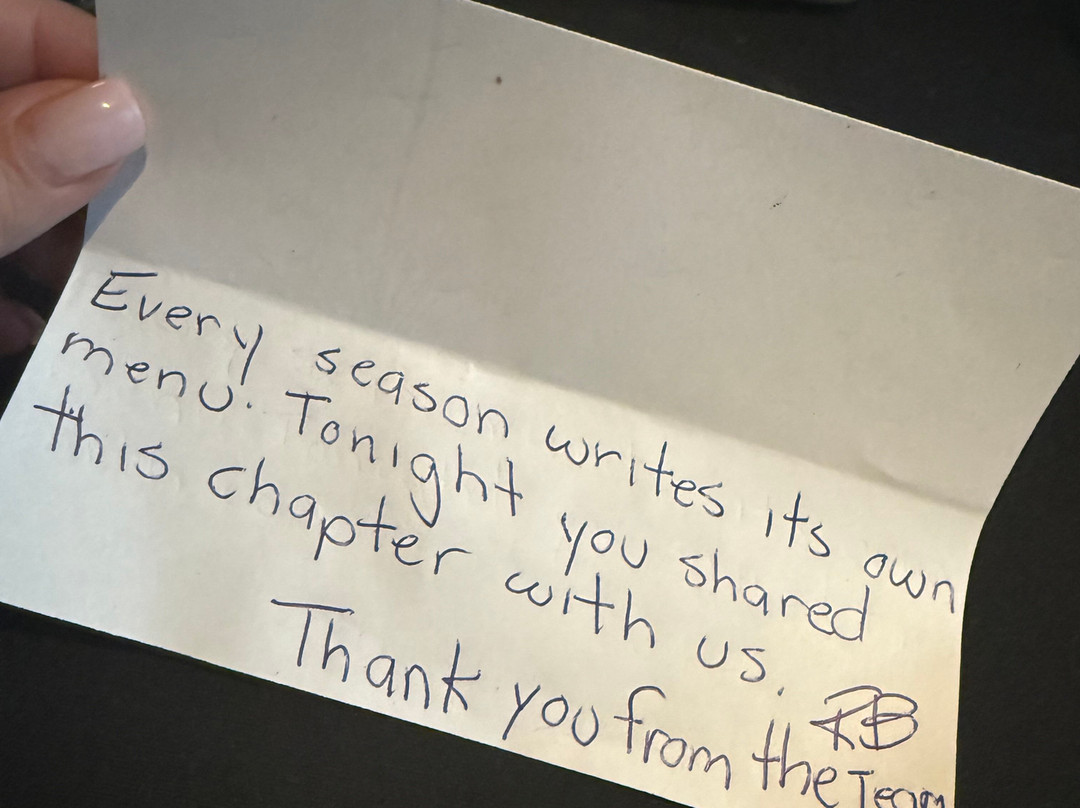 Every season writes its own
menu. Tonight you shared
this chapter with us.
RB
Thank you from the Team